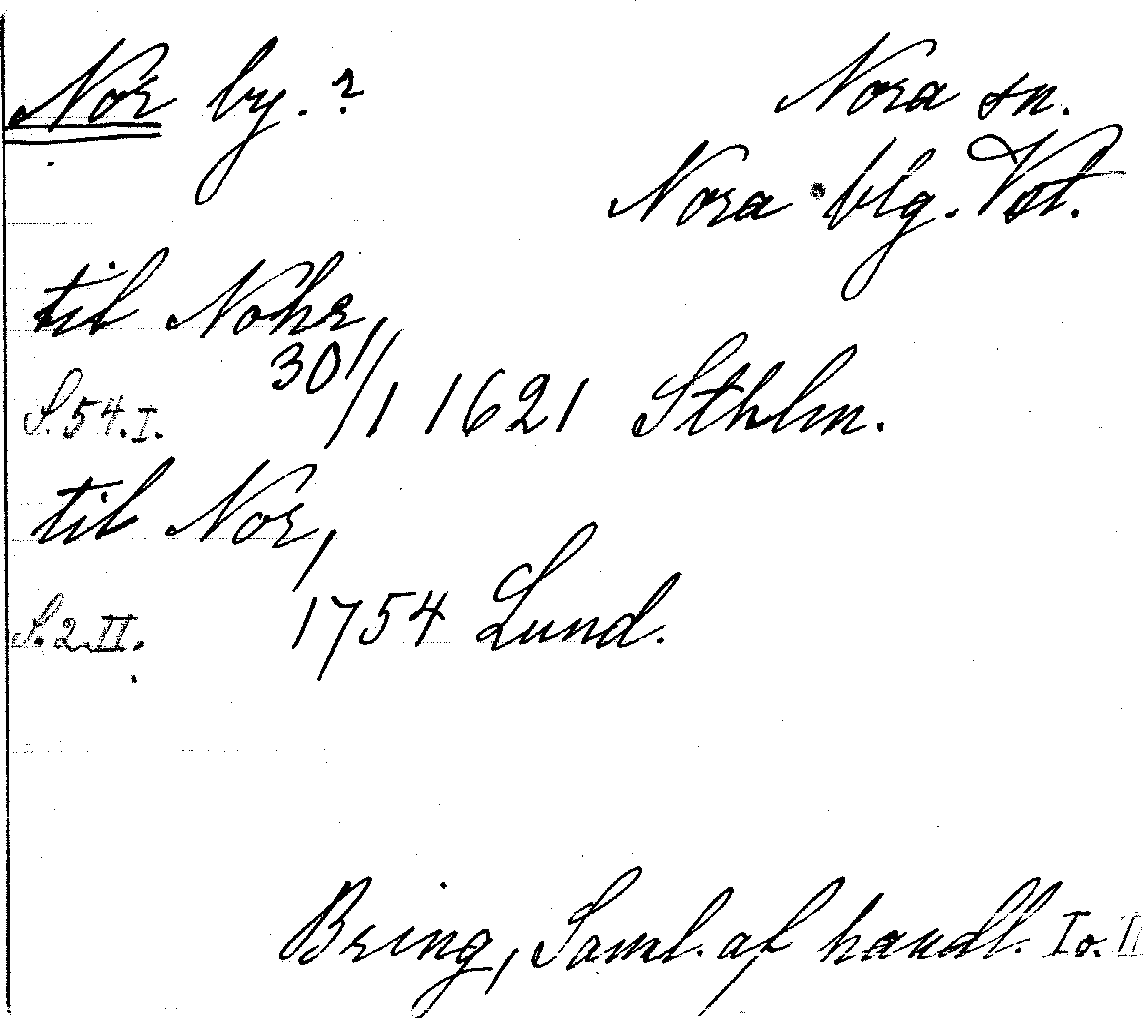 Nor by.?
Nora sn.
Nora blg. Vst.
til Nohr,
S. 54. I. 30/1 1621 Sthlm.
til Nor,
S. 2 II. 1754 Lund.
Bring, Saml. af handl. I o. II